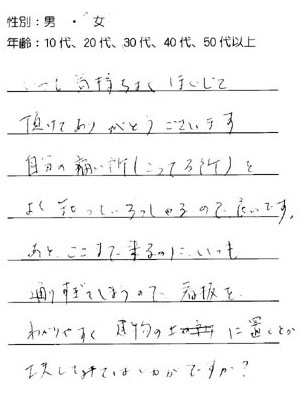 性別:男 ・ 女
年齢:10代、20代、30代、40代、50代以上
いつも気持ちよく ほぐして
頂けてありがとうございます
自分の痛い所(こってる所)を
よく知っていらっしゃるので良いです。
あと、ここまで来るのに、いつも
通り過ぎてしまうので、看板を
わかりやすく 建物の に置くとか
してみてはいかがですか?